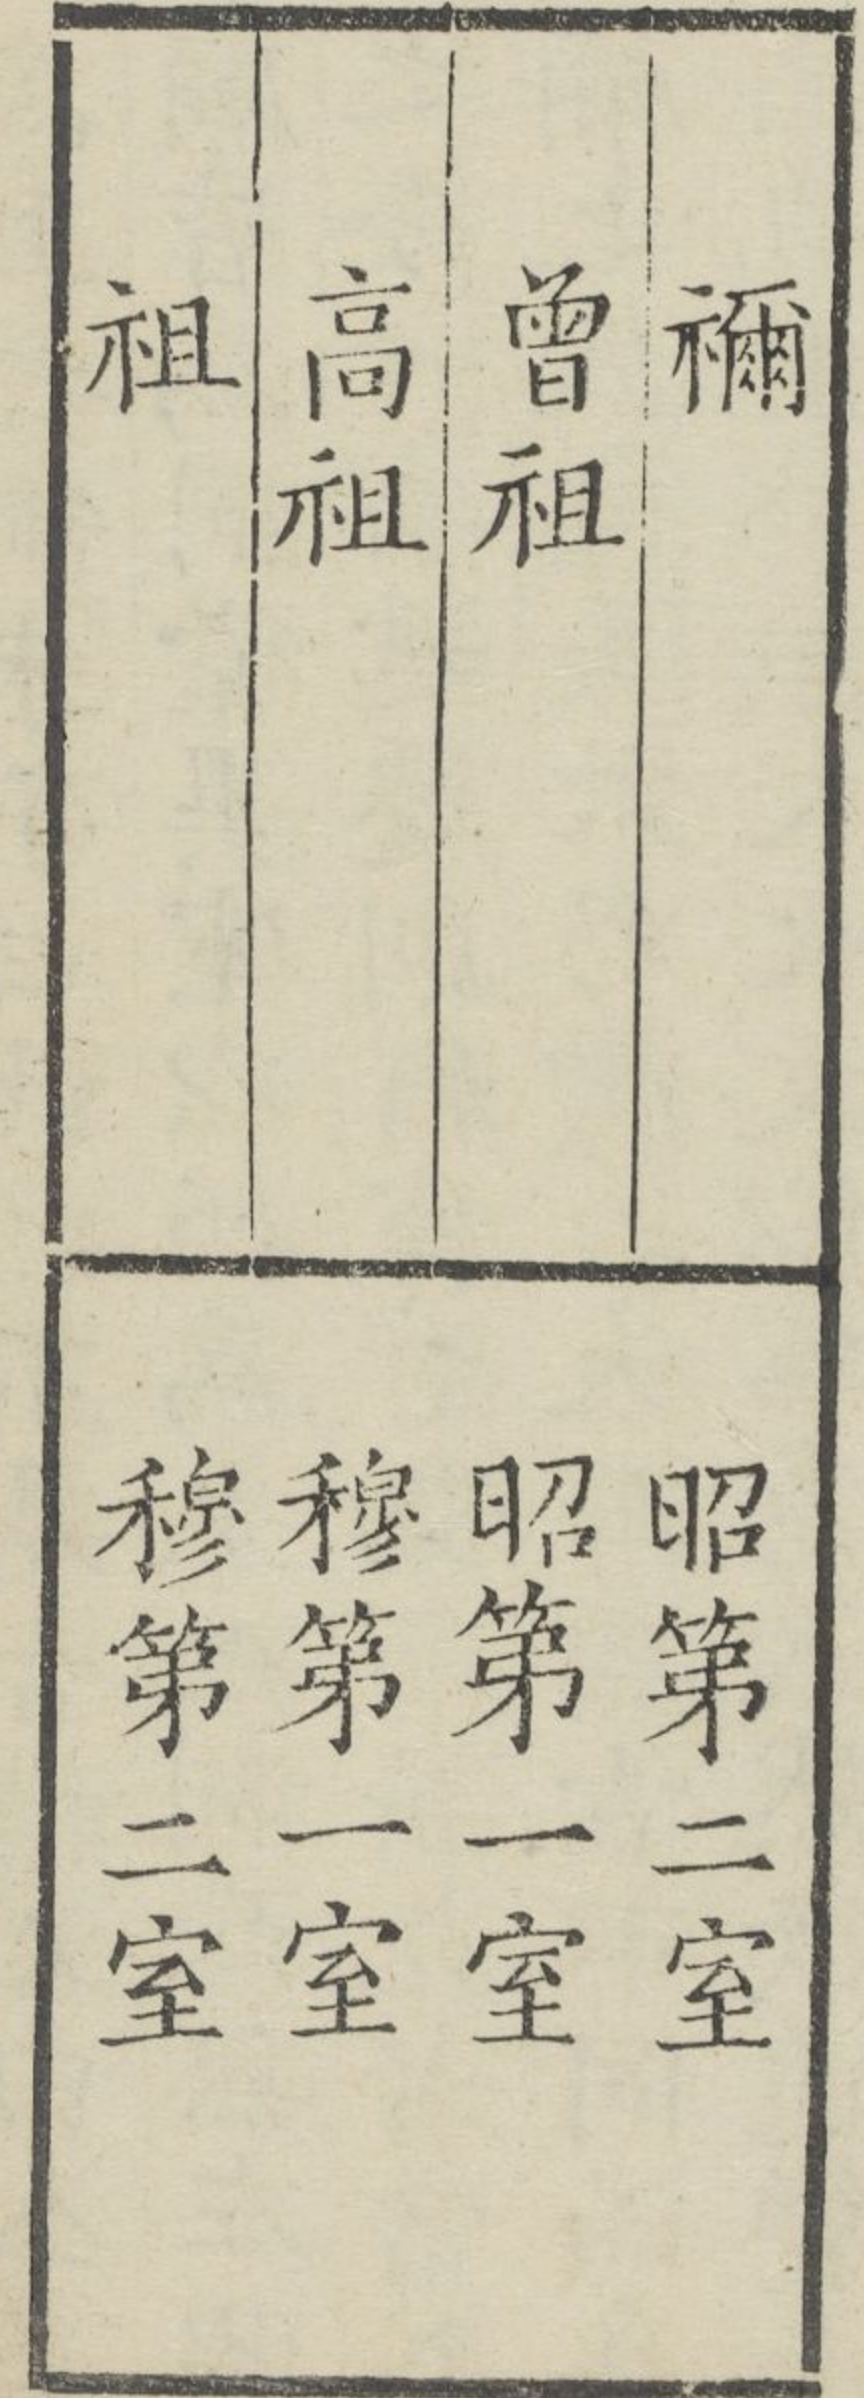 禰
曾祖
高祖
祖
昭第二室
昭第一室
穆第一室
穆第二室